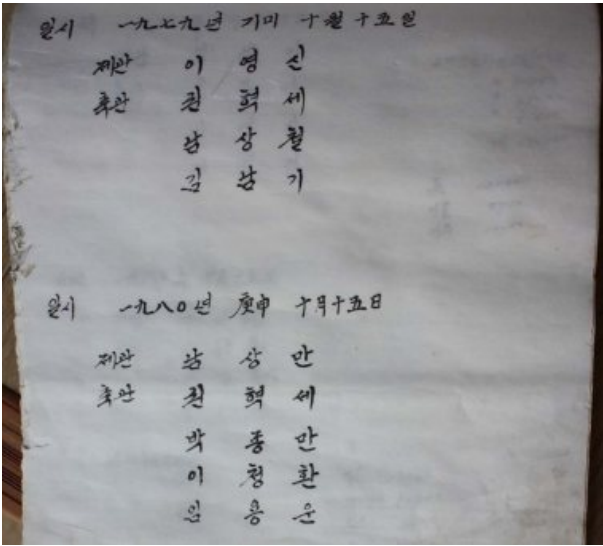 일시 一九七九년 기미 十월 十五일
제관 이 영 신
축관 권 혁 세
남 상 철
김 남 기
일시 一九八〇년 庚申 十月十五日
제관 남 상 만
축관 권 혁 세
박 종 만
이 청 환
임 용 운